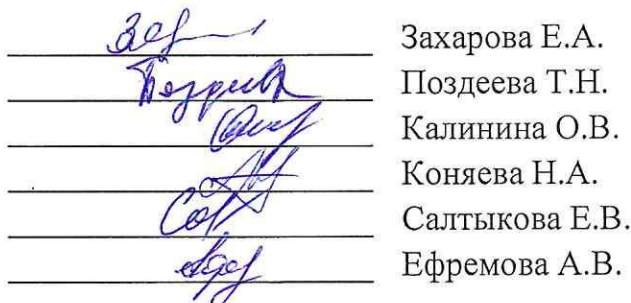 Захарова Е.А.
Поздеева Т.Н.
Калинина О.В.
Коняева Н.А.
Салтыкова Е.В.
Ефремова А.В.